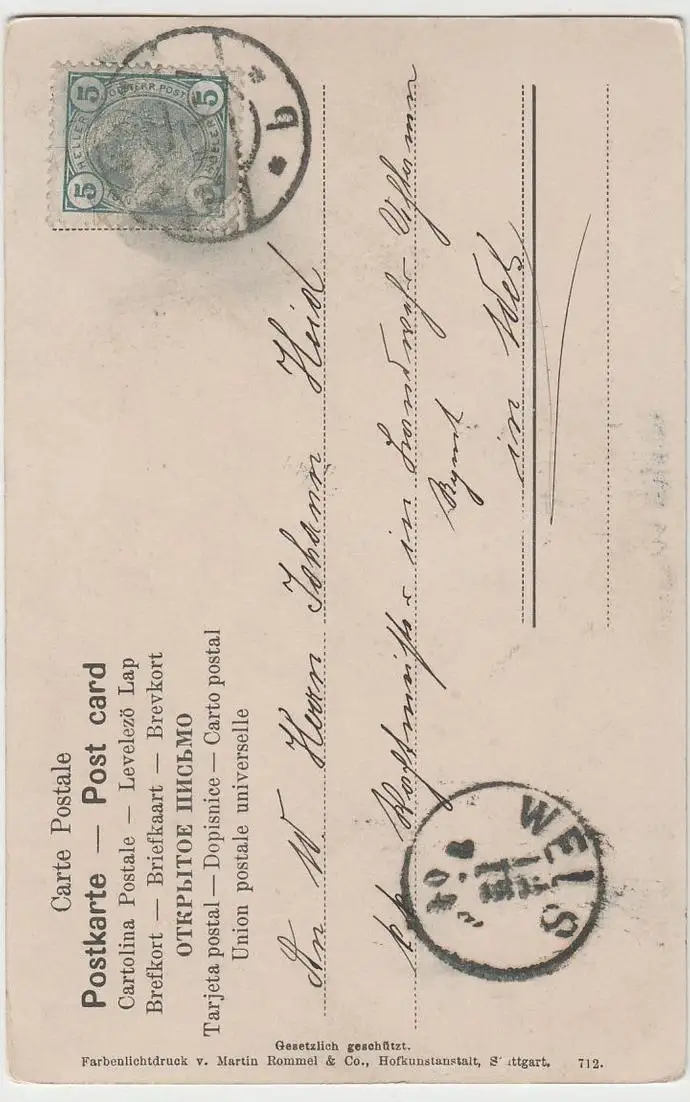 Carte Postale
Postkarte — Post card
Cartolina Postale — Levelező Lap
Brefkort — Briefkaart — Brevkort
ОТКРЫТОЕ ПИСЬМО
Tarjeta postal — Dopisnice — Carto postal
Union postale universelle
5 5
5 5
HELLER
b
An W Herrn Johann Heid
kk in Landwehr
in Wels
WELS
Gesetzlich geschützt.
Farbenlichtdruck v. Martin Rommel & Co., Hofkunstanstalt, Stuttgart. 712.